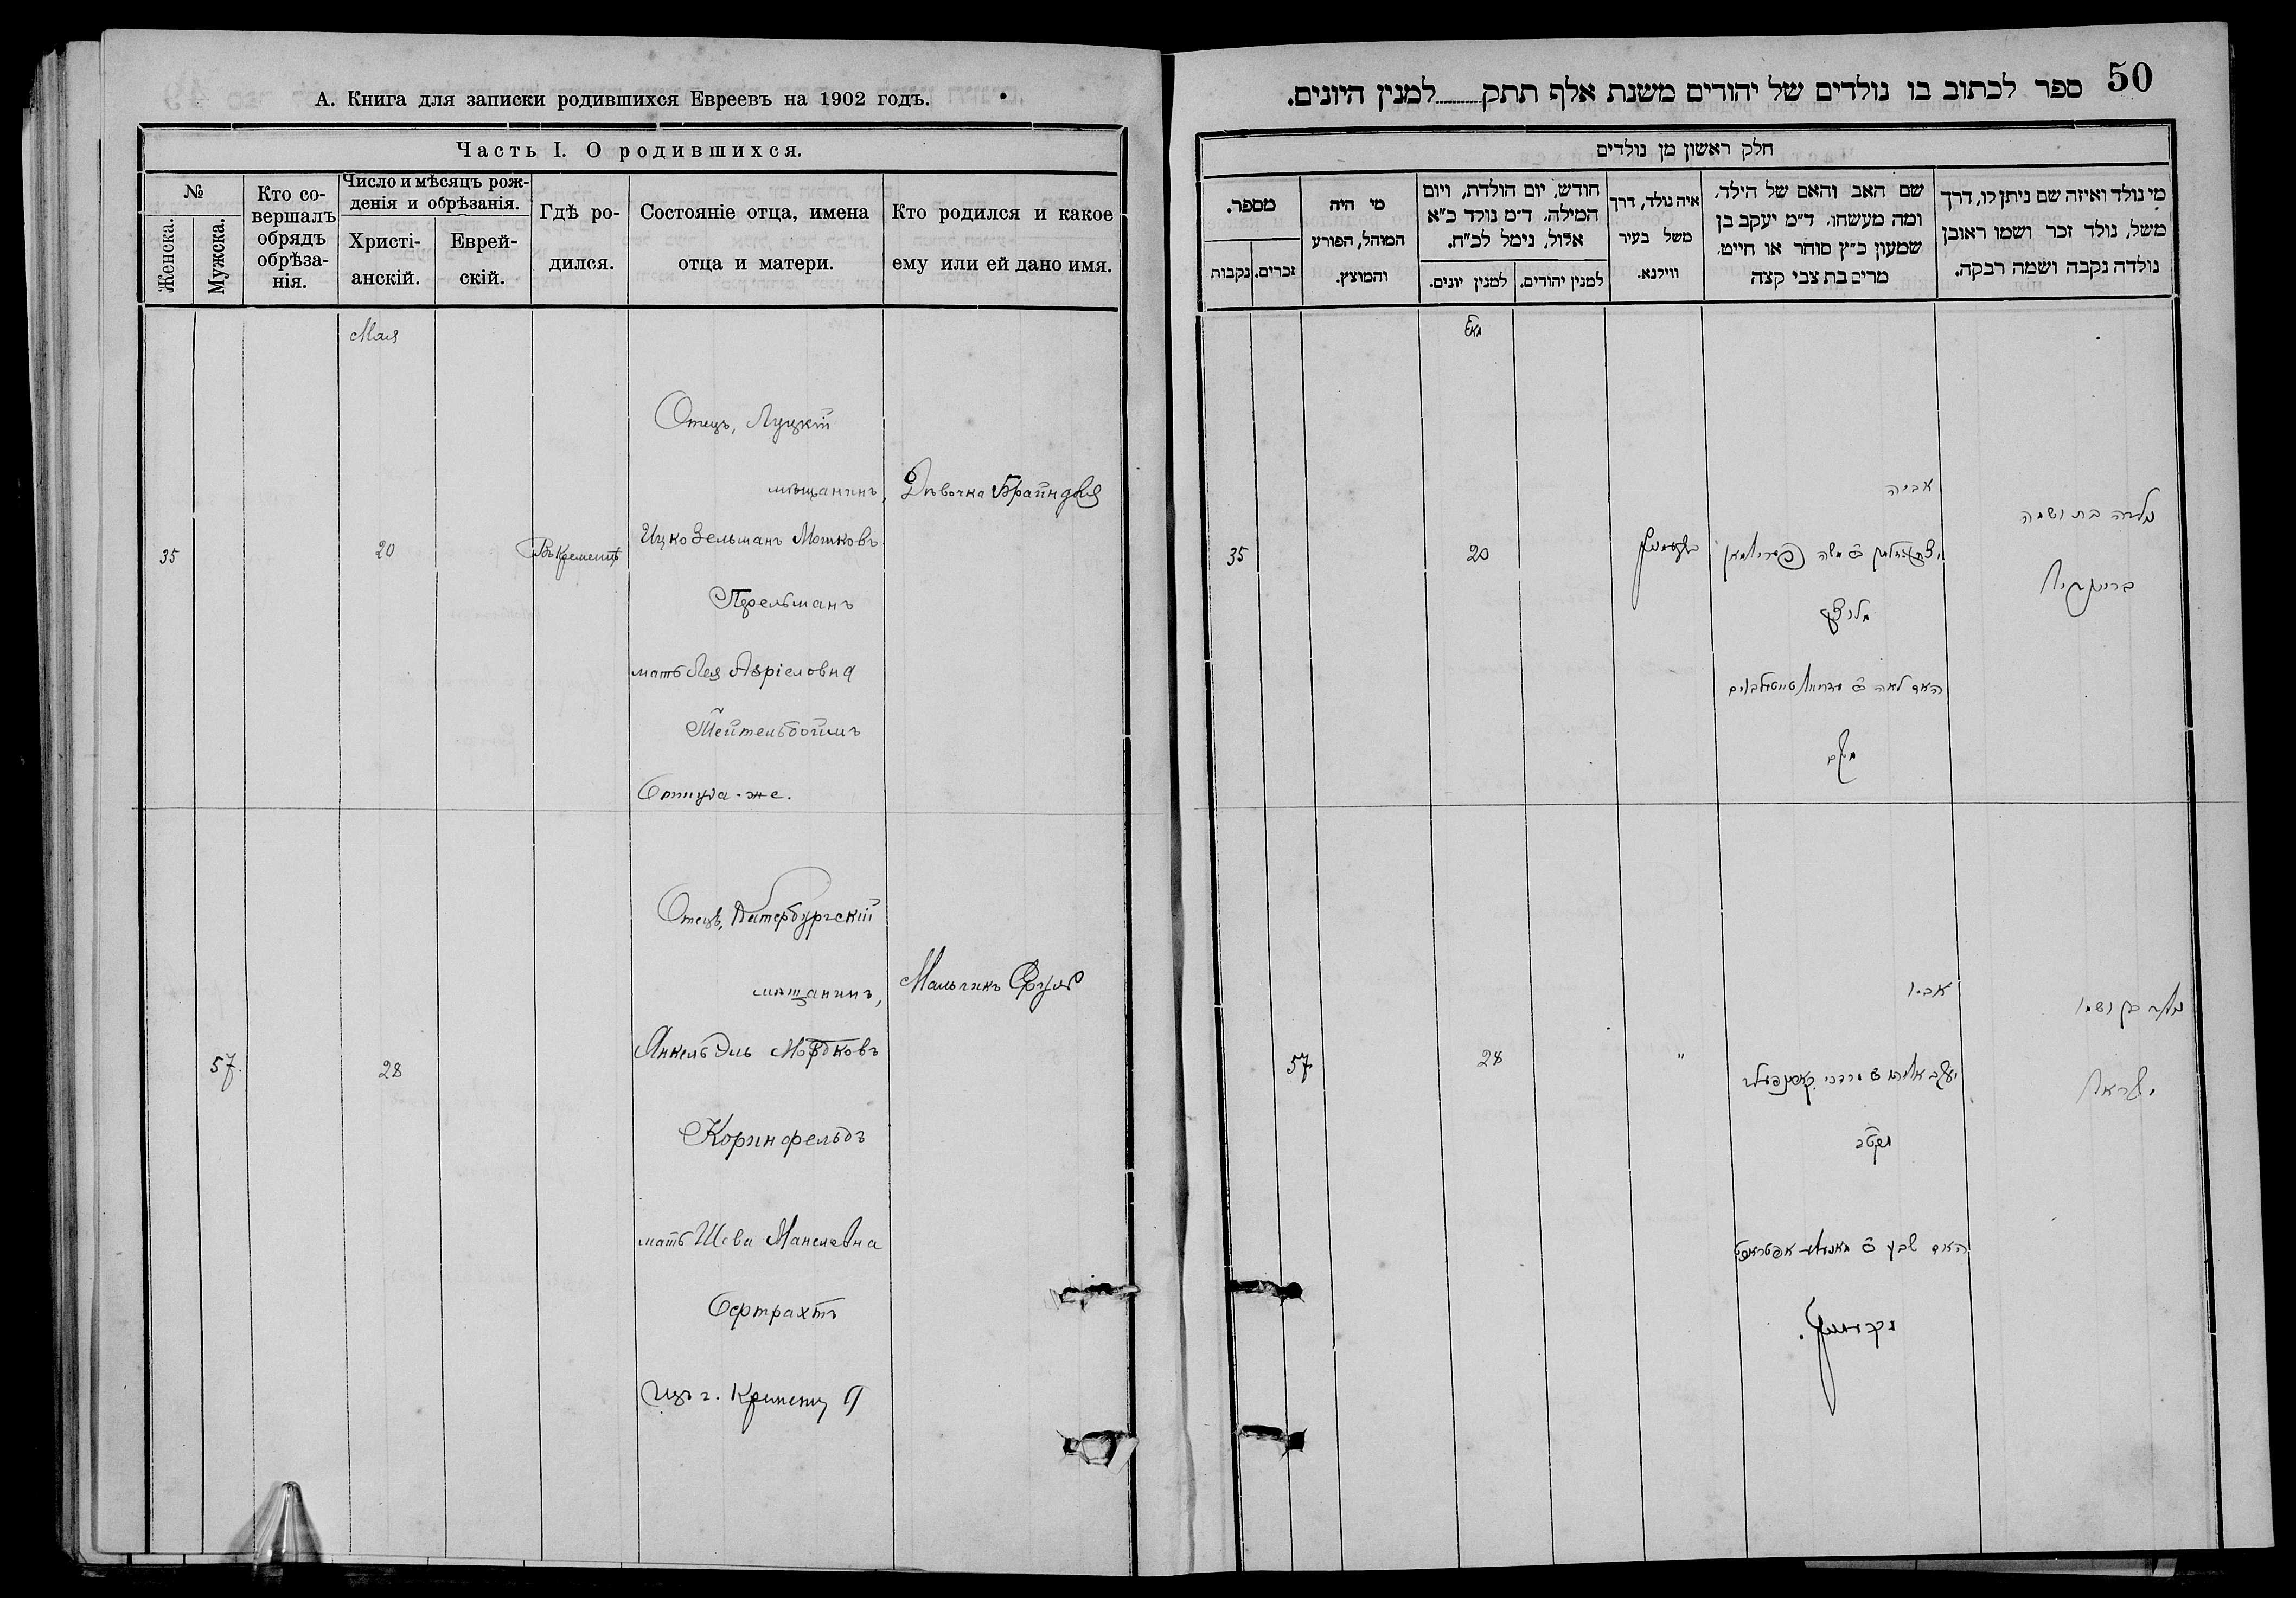 А. Книга для записки родившихся Евреевъ на 1902 годъ.
Часть I. О родившихся.
№
Женска.
Мужска.
Кто со-
вершалъ
обрядъ
обрѣза-
нія.
Число и мѣсяцъ рож-
денія и обрѣзанія.
Христі-
анскій.
Еврей-
скій.
Гдѣ ро-
дился.
Состояніе отца, имена
отца и матери.
Кто родился и какое
ему или ей дано имя.
Мая
35
20
Въ Кременцѣ
Отецъ, Луцкій
мѣщанинъ,
Ицко Зельманъ Мошковъ
Перельманъ
мать Лея Азріеловна
Тейтельбоймъ
Оттуда-же.
Дѣвочка Брайндля
57.
28
Отецъ,
мѣщанинъ,
Янкель Эль Мордковъ
Коринфельдъ
мать Шева Манелевна
Сертрахтъ
изъ г. Кременца
Мальчикъ Сруль
50
ספר לכתוב בו נולדים של יהודים משנת אלף תתק......למנין היונים.
חלק ראשון מן נולדים
מי נולד ואיזה שם ניתן לו, דרך
משל, נולד זכר ושמו ראובן
נולדה נקבה ושמה רבקה.
שם האב והאם של הילד,
ומה מעשהו. ד״מ יעקב בן
שמעון כ״ץ סוחר או חייט,
מרים בת צבי קצה
איה נולד, דרך
משל בעיר
ווילנא.
חודש, יום הולדת, ויום
המילה. ד״מ נולד כ״א
אלול, נימל לכ״ח.
למנין יהודים.
למנין יונים.
מי היה
המוהל, הפורע
והמוצץ.
מספר.
זכרים.
נקבות
מאי
נולדה בת ושמה
בריינדיל
אביה
משה פערילמאן
מלוצק
האם לאה טייטילבוים
משם
20
35
נולד בן ושמו
ישראל
אביו
יעקב
האם שבע
מקרעמניץ.
"
28
57